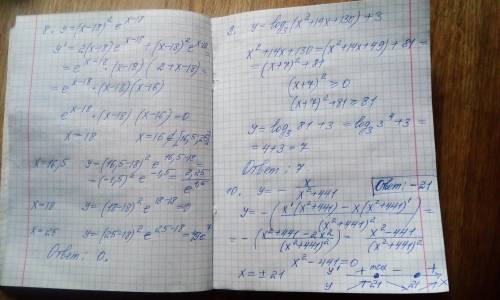 8. y=(x-18)² e^(x-18)
y' = 2(x-18)e^(x-18) + (x-18)² e^(x-18) =
= e^(x-18) · (x-18)(2+x-18) =
= e^(x-18) · (x-18)(x-16)
e^(x-18) · (x-18)(x-16) = 0
x=18 x=16 ∉ [16,5; 25]
x=16,5 y=(16,5-18)² e^(16,5-18) =
= (-1,5)² e^(-1,5) = 2,25/e^(1,5)
x=18 y=(18-18)² e^(18-18) = 0
x=25 y=(25-18)² e^(25-18) = 49e⁷
Ответ: 0.
9. y=log₃(x²+14x+130)+3
x²+14x+130=(x²+14x+49)+81=
=(x+7)²+81
(x+7)² ≥ 0
(x+7)²+81 ≥ 81
y=log₃ 81+3 = log₃ 3⁴+3 =
=4+3=7
Ответ: 7.
10. y = - x/(x²+441) Ответ: -21
y' = - (x'(x²+441) - x(x²+441)')/(x²+441)² =
= - (x²+441-2x²)/(x²+441)² = (x²-441)/(x²+441)²
x²-441=0
x = ±21 y' + max - +
y -21 21 x